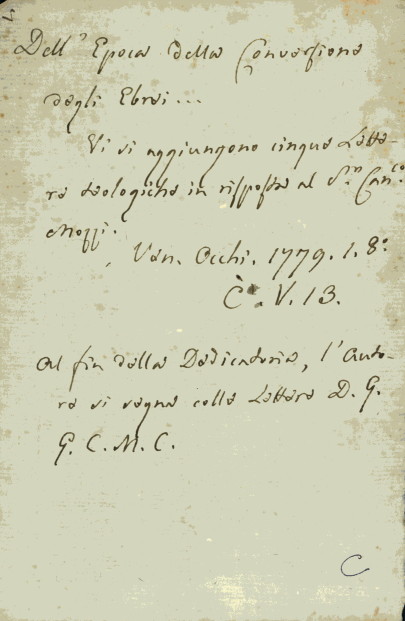 Dell' Epoca della Conversione
degli Ebrei...
Vi si aggiungono cinque Lette-
re teologiche in risposta al S.r Can.co
Mozzi.
Ven. Occhi. 1779. 1. 8.°
C. V. 13.
Al fin della Dedicatoria, l'Auto-
re si segna colle Lettere D. G.
G. C. M. C.
C